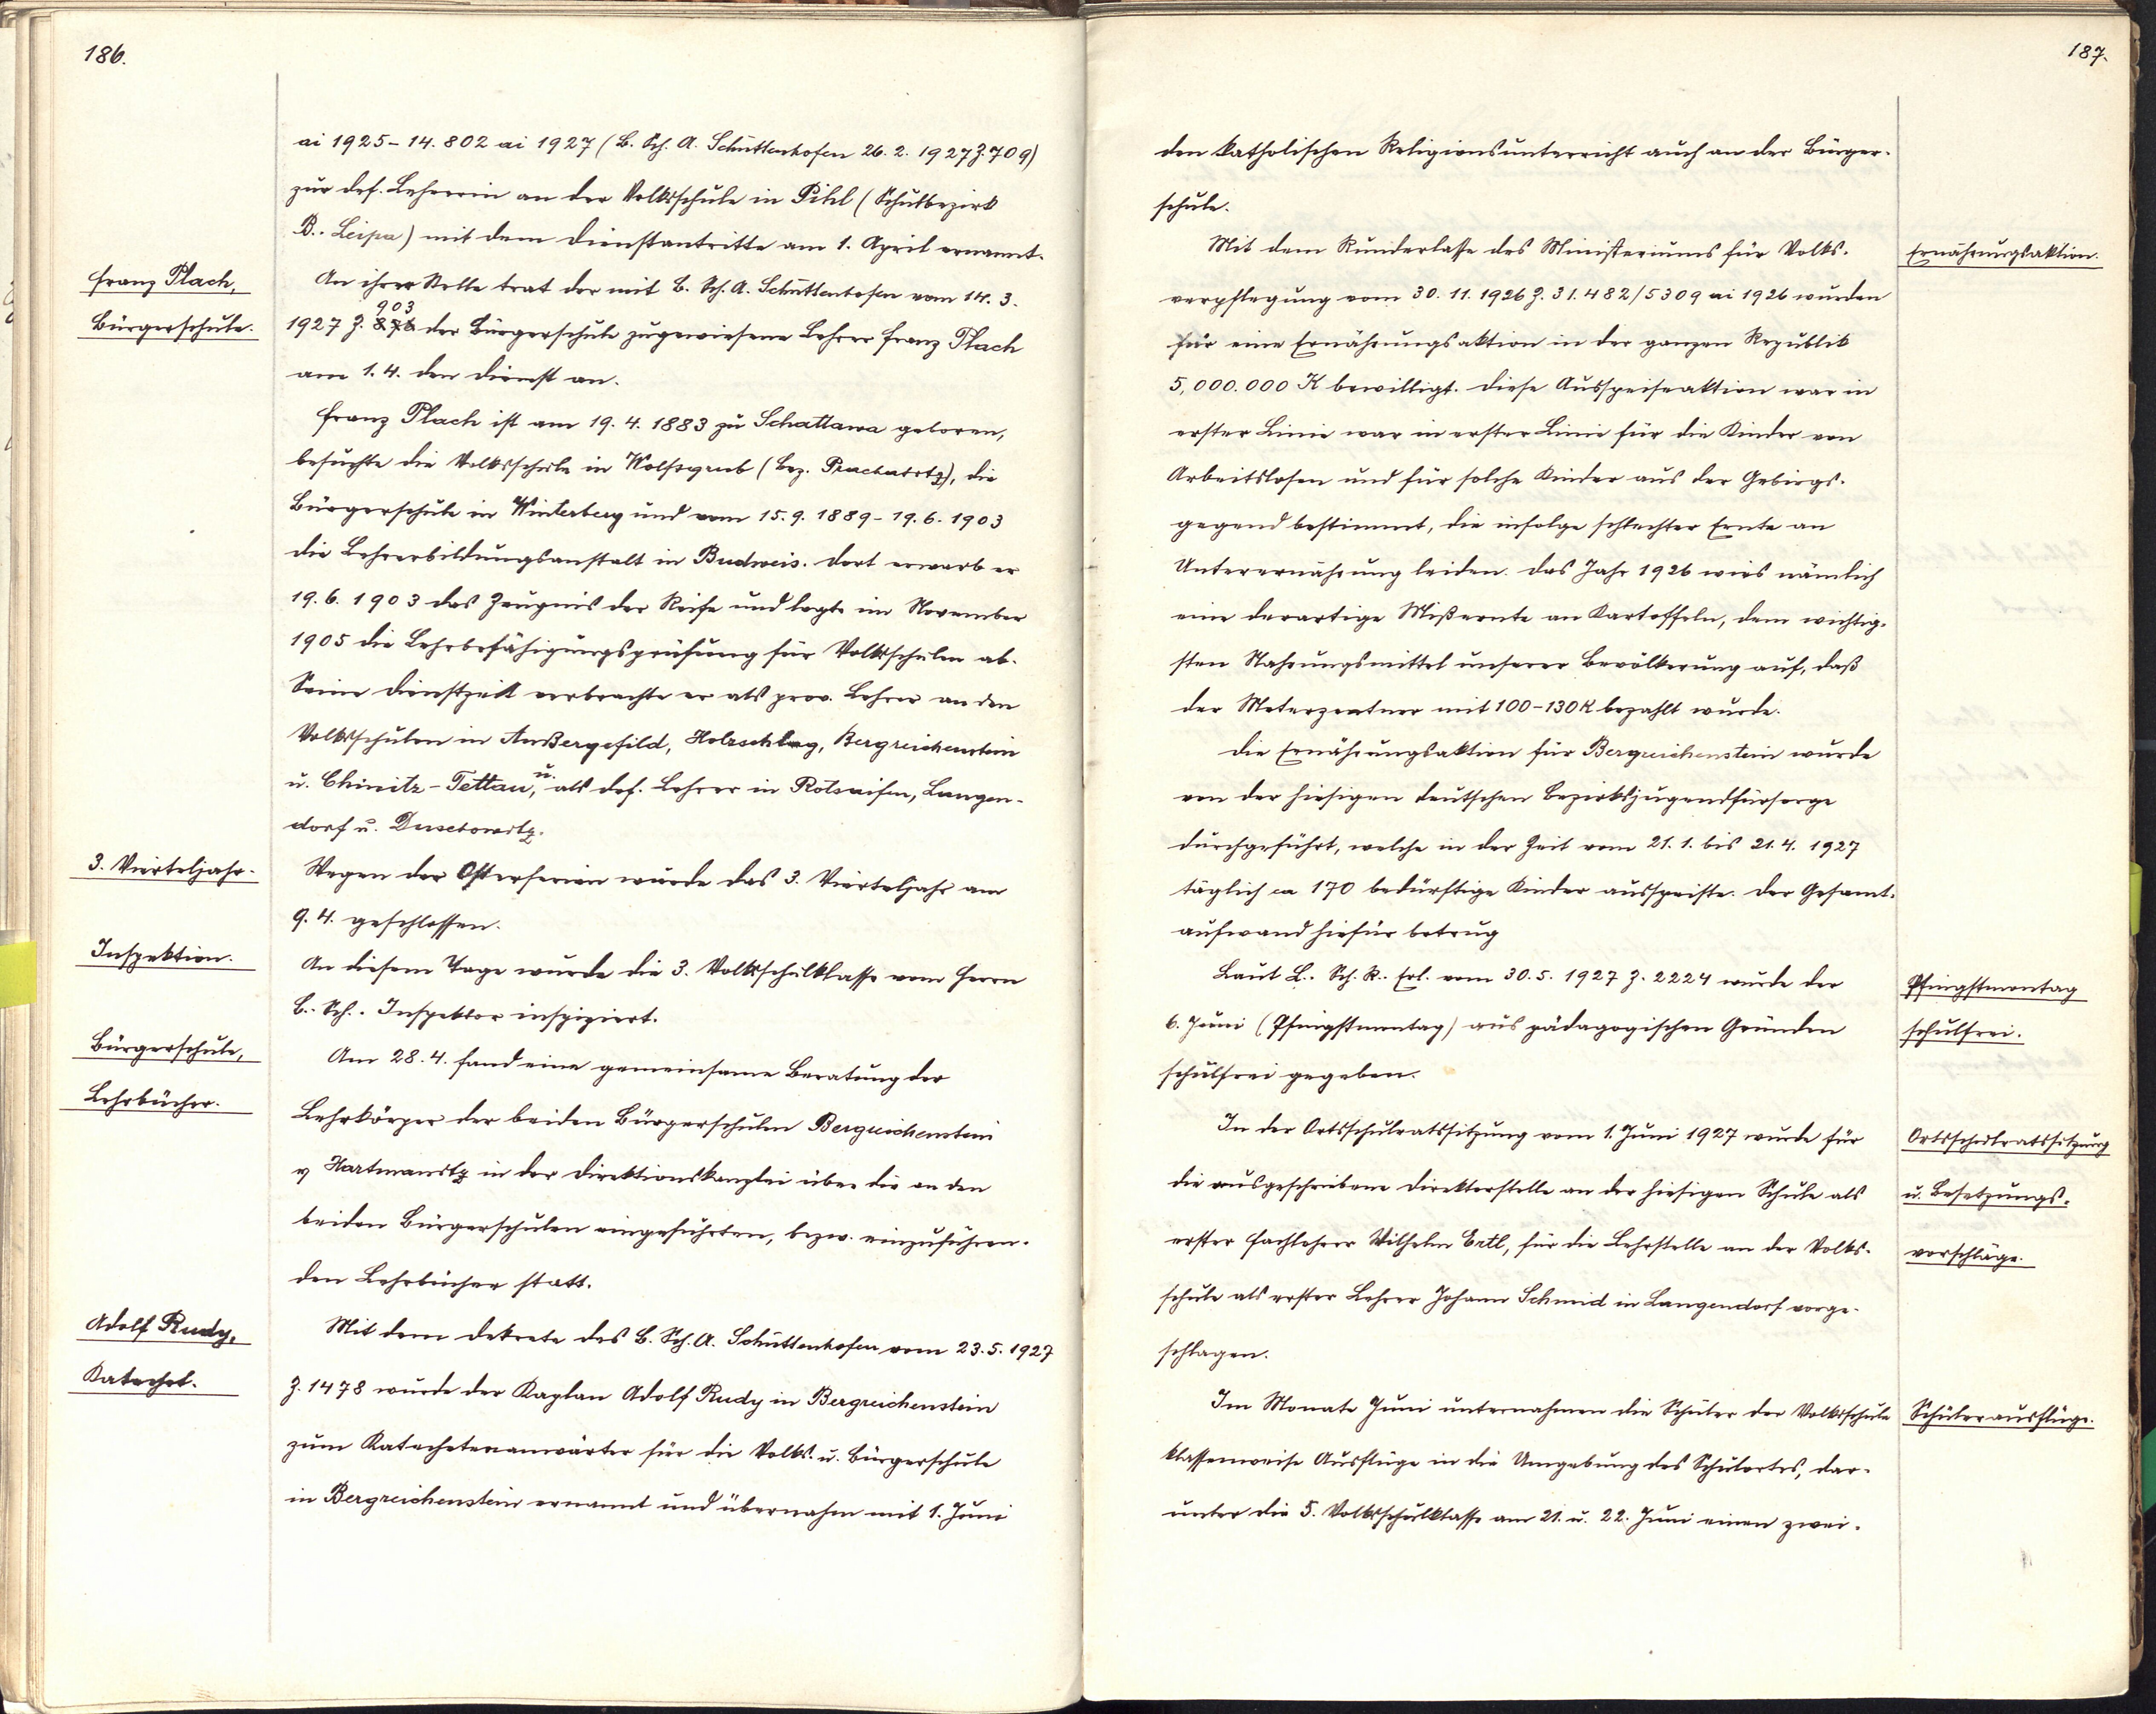 186.
ai 1925 - 14.802 ai 1927 (B. Sch. A. Schüttenhofen 26.2.1927 Z. 709)
zur def. Lehrerin an der Volksschule in Pihl (Schulbezirk
B.. Leipa) mit dem Dienstantritte am 1. April ernannt.
Franz Plach,
Bürgerschule.
An ihrer Stelle trat der mit B. Sch. A. Schüttenhofen vom 14.3.
903
1927 Z. der Bürgerschule zugewiesene Lehrer Franz Plach
am 1.4. den Dienst an.
Franz Plach ist am 19.4.1883 zu Schattawa geboren,
besuchte die Volksschule in Wolfsgrub (Bez. Prachatitz), die
Bürgerschule in Winterberg und vom 15.9.1889 - 19.6.1903
die Lehrerbildungsanstalt in Budweis. Dort erwarb er
19.6.1903 das Zeugnis der Reife und legte im November
1905 die Lehrbefähigungsprüfung für Volksschulen ab.
Seine Dienstzeit verbrachte er als prov. Lehrer an den
Volksschulen in Außergefild, Holzschlag, Bergreichenstein
u. Chinitz-Tettau, u. als def. Lehrer in Rotsaifen, Langen-
dorf u.
3. Vierteljahr.
Wegen der Osterferien wurde das 3. Vierteljahr am
9.4. geschlossen.
Inspektion.
An diesem Tage wurde die 3. Volksschulklasse vom Herrn
B.. Sch.. Inspektor inspiziert.
Bürgerschule,
Lehrbücher.
Am 28.4. fand eine gemeinsame Beratung der
Lehrkörper der beiden Bürgerschulen Bergreichenstein
u Hartmanitz in der Direktionskanzlei über die an den
beiden Bürgerschulen eingeführten, bezw. einzuführen-
den Lehrbücher statt.
Adolf Rudy,
Katechet.
Mit dem Dekrete des B. Sch. A. Schüttenhofen vom 23.5.1927
Z. 1478 wurde der Kaplan Adolf Rudy in Bergreichenstein
zum Katechetenanwärter für die Volks- u. Bürgerschule
in Bergreichenstein ernannt und übernahm mit 1. Juni
187.
den katholischen Religionsunterricht auch an der Bürger-
schule.
Ernährungsaktion.
Mit dem Runderlasse des Ministeriums für Volks-
verpflegung vom 30.11.1926 Z. 31.482/5309 ai 1926 wurden
für eine Ernährungsaktion in der ganzen Republik
5,000.000 K bewilligt. Diese Ausspeiseaktion war in
erster Linie war in erster Linie für die Kinder von
Arbeitslosen und für solche Kinder aus der Gebirgs-
gegend bestimmt, die infolge schlechter Ernte an
Unterernährung leiden. Das Jahr 1926 wies nämlich
eine derartige Mißernte an Kartoffeln, dem wichtig-
sten Nahrungsmittel unserer Bevölkerung auf, daß
der Meterzentner mit 100-130 K bezahlt wurde.
Die Ernährungsaktion für Bergreichenstein wurde
von der hiesigen deutschen Bezirksjugendfürsorge
durchgeführt, welche in der Zeit vom 21.1. bis 21.4.1927
täglich ca 170 bedürftige Kinder ausspeiste. Der Gesamt-
aufwand hiefür betrug
Pfingstmontag
schulfrei.
Laut L.. Sch. R.. Erl. vom 30.5.1927 Z. 2224 wurde der
6. Juni (Pfingstmontag) aus pädagogischen Gründen
schulfrei gegeben.
Ortsschulratssitzung
u. Besetzungs-
vorschläge.
In der Ortsschulratssitzung vom 1. Juni 1927 wurde für
die ausgeschriebene Direktorstelle an der hiesigen Schule als
erster Fachlehrer Wilhelm Ertl, für die Lehrstelle an der Volks-
schule als erster Lehrer Johann Schmid in Langendorf vorge-
schlagen.
Schülerausflüge.
Im Monate Juni unternahmen die Schüler der Volksschule
klassenweise Ausflüge in die Umgebung des Schulortes, dar-
unter die 5. Volksschulklasse am 21. u. 22. Juni einen zwei-